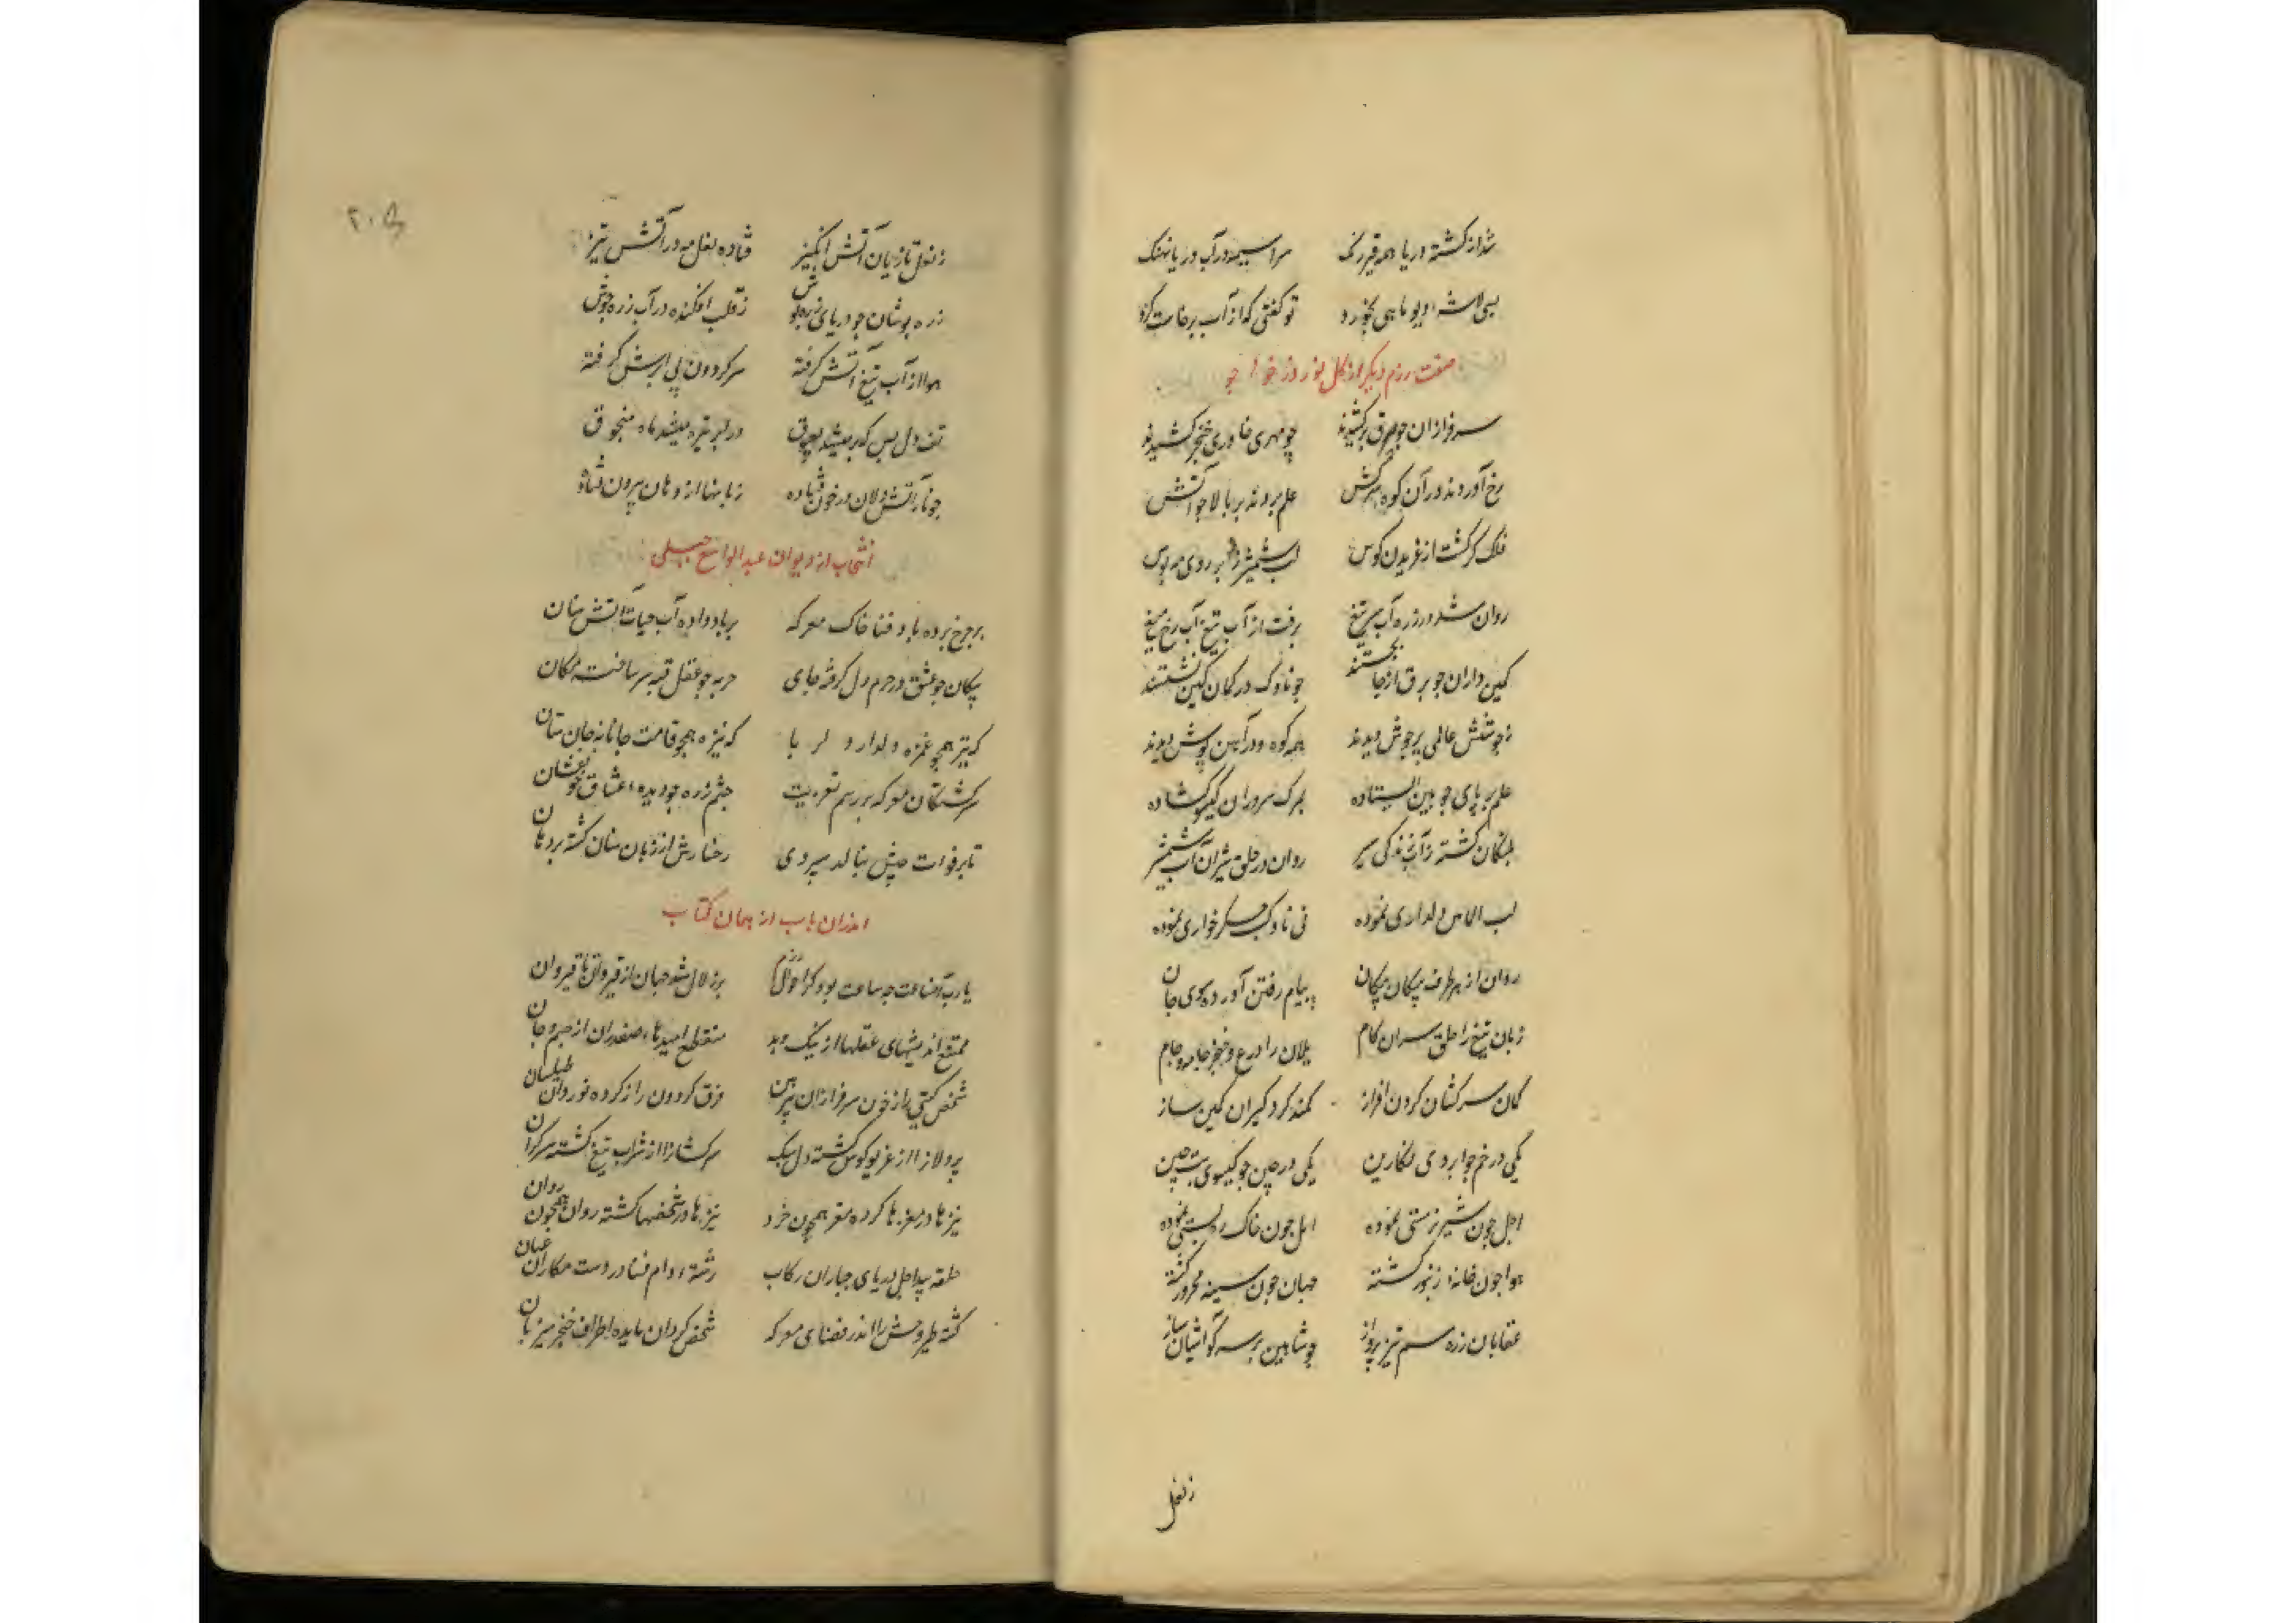 شد از کشته دریا همه قیر رنک سراسیمه در آب دریا نهنک
بسی لاشه دیو ماهی بخورد تو کفتی که از آب برخاست کرد
صفت رزم دیکر از کل نوروز خواجو
سرفرازان جو برق برکشیدند چو مهری خاوری خنجر کشیدند
رخ آوردند در آن کوه سرکش علم بردند بر بالا جو آتش
فلک کر کشت از غریدن کوس لب شمشیر بر روی مه بوس
روان شد در زره آب سر تیغ برفت از آب تیغ آب رخ میغ
کمین داران جو برق از جا بجستند جو ناوک در کمان کین نشستند
ز جوشش عالمی پر جوش دیدند همه کوه در آهن پوش دیدند
علم بر پای جو بین ایستاده بمرک سروران کیسو کشاده
پلنکان کشته ز آب زندکی سیر روان در حلق شیران آب شمشیر
لب الماس دلداری نموده نی ناوک جکرخواری نموده
روان از هر طرف پیکان پیکان پیام رفتن آورده سوی جان
زبان تیغ را حلق سران کام یلان را درع و خنجر جامه و جام
کمان سرکشان کردن افراز کمند کردکیران کمین ساز
یکی در خم جو ابروی نکارین یکی در چین جو کیسوی بت چین
اجل جون شیر نر مستی نموده امل جون خاک ره پستی نموده
هوا جون خانه زنبور کشته جهان جون سینه محرور کشته
عقابان زره سم تیز پرواز جو شاهین بر سر کوه آشیان ساز
زنعل
۲۰۵
ز نعل تازیان آتش انکیز فتاده نعل مه در آتش تیز
زره پوشان جو دریای زره پوش ز قلب افکنده در آب زره جوش
هوا از آب تیغ آتش کرفته سر کردون پی ابرش کرفته
تف دل بس که بر میشد بعیوق در ابر تیره میشد ماه منجوق
جو مار آتش دلان در خون فتاده زبانها از دهان بیرون فتاده
انتخاب از دیوان عبد الواسع جبلی
بر جرخ برده باد فنا خاک معرکه بر باد داده آب حیات آتش سنان
پیکان جو عشق در حرم دل کرفته جای حربه جو عقل قبه سر ساخته مکان
که تیر همجو غمزه دلدار دلربا که نیزه همجو قامت جانانه جان ستان
بر کشتکان معرکه بر رسم تعزیت جشم زره جو دیده عشاق خون فشان
تا بر فوات جیش بنالد سپر دمی رخسارش از زبان سنان کشته بر دهان
اندران باب از همان کتاب
یارب آن ساعت جه ساعت بود کز احوال رزم پر زلزال شد جهان از قیروان تا قیروان
ممتنع اندیشهای عقلها از نیک و بد منقطع امیدهای صفدران از جسم و جان
شخص کیتی را ز خون سرفرازان پیرهن فرق کردون را ز کرده نوردان طیلسان
پردلانرا از غریو کوس کشته دل سبک سرکشانرا از شراب تیغ کشته سر کران
نیزها در مغزها کرده مقر همچون خرد تیرها در شخصها کشته روان همجون روان
حلقه پیدا اجل در پای جباران رکاب رشته دام فنا در دست مکاران عنان
کشته طیر و وحش را اندر فضای معرکه شخص کردان مایده اطراف خنجر میزبان